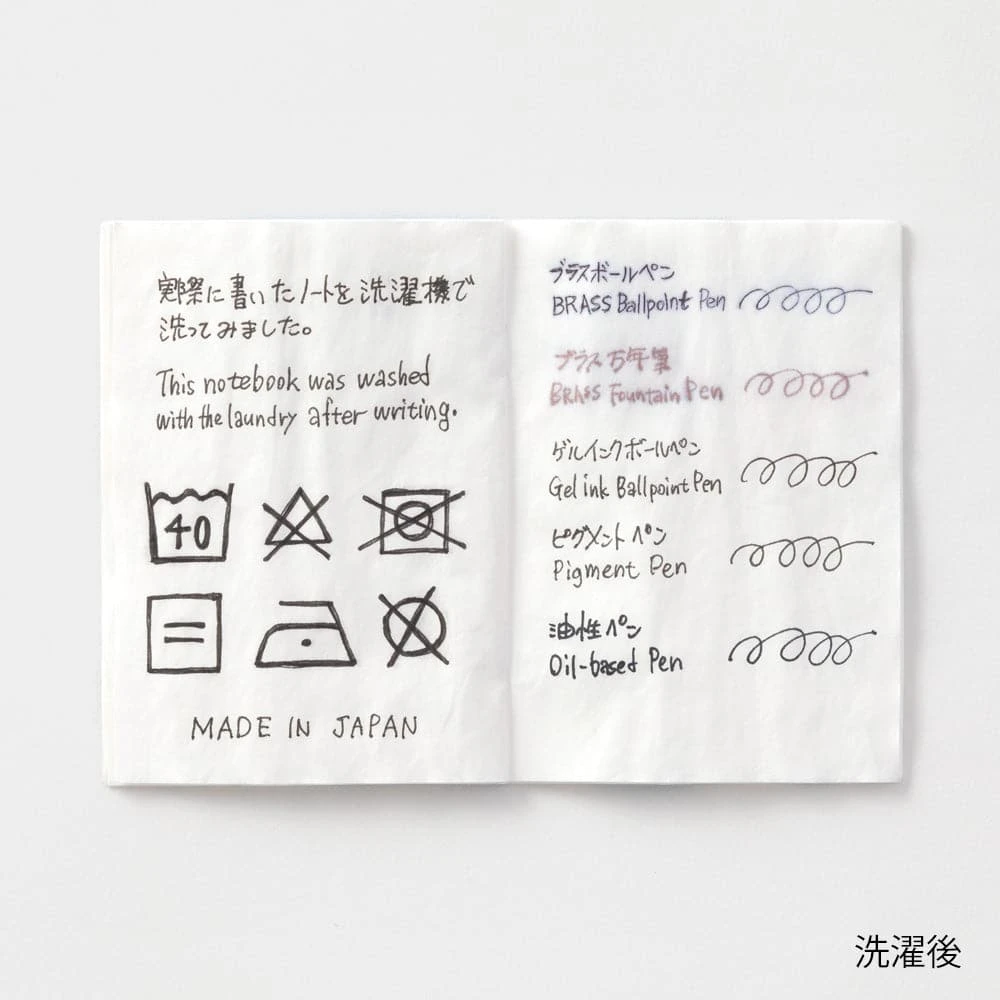 実際に書いたノートを洗濯機で
洗ってみました。
This notebook was washed
with the laundry after writing.
40
MADE IN JAPAN
ブラスボールペン
BRASS Ballpoint Pen
ブラス万年筆
BRASS Fountain Pen
ゲルインクボールペン
Gel ink Ballpoint Pen
ピグメントペン
Pigment Pen
油性ペン
Oil-based Pen
洗濯後